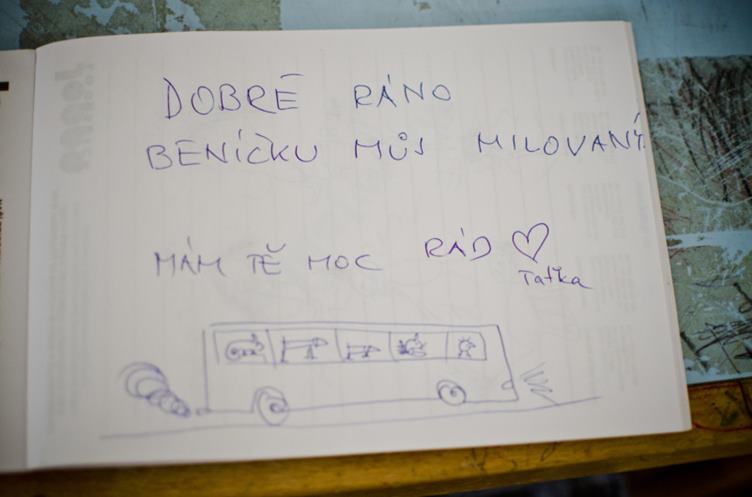 DOBRÉ RÁNO
BENÍČKU MŮJ MILOVANÝ
MÁM TĚ MOC RÁD ♡
Taťka